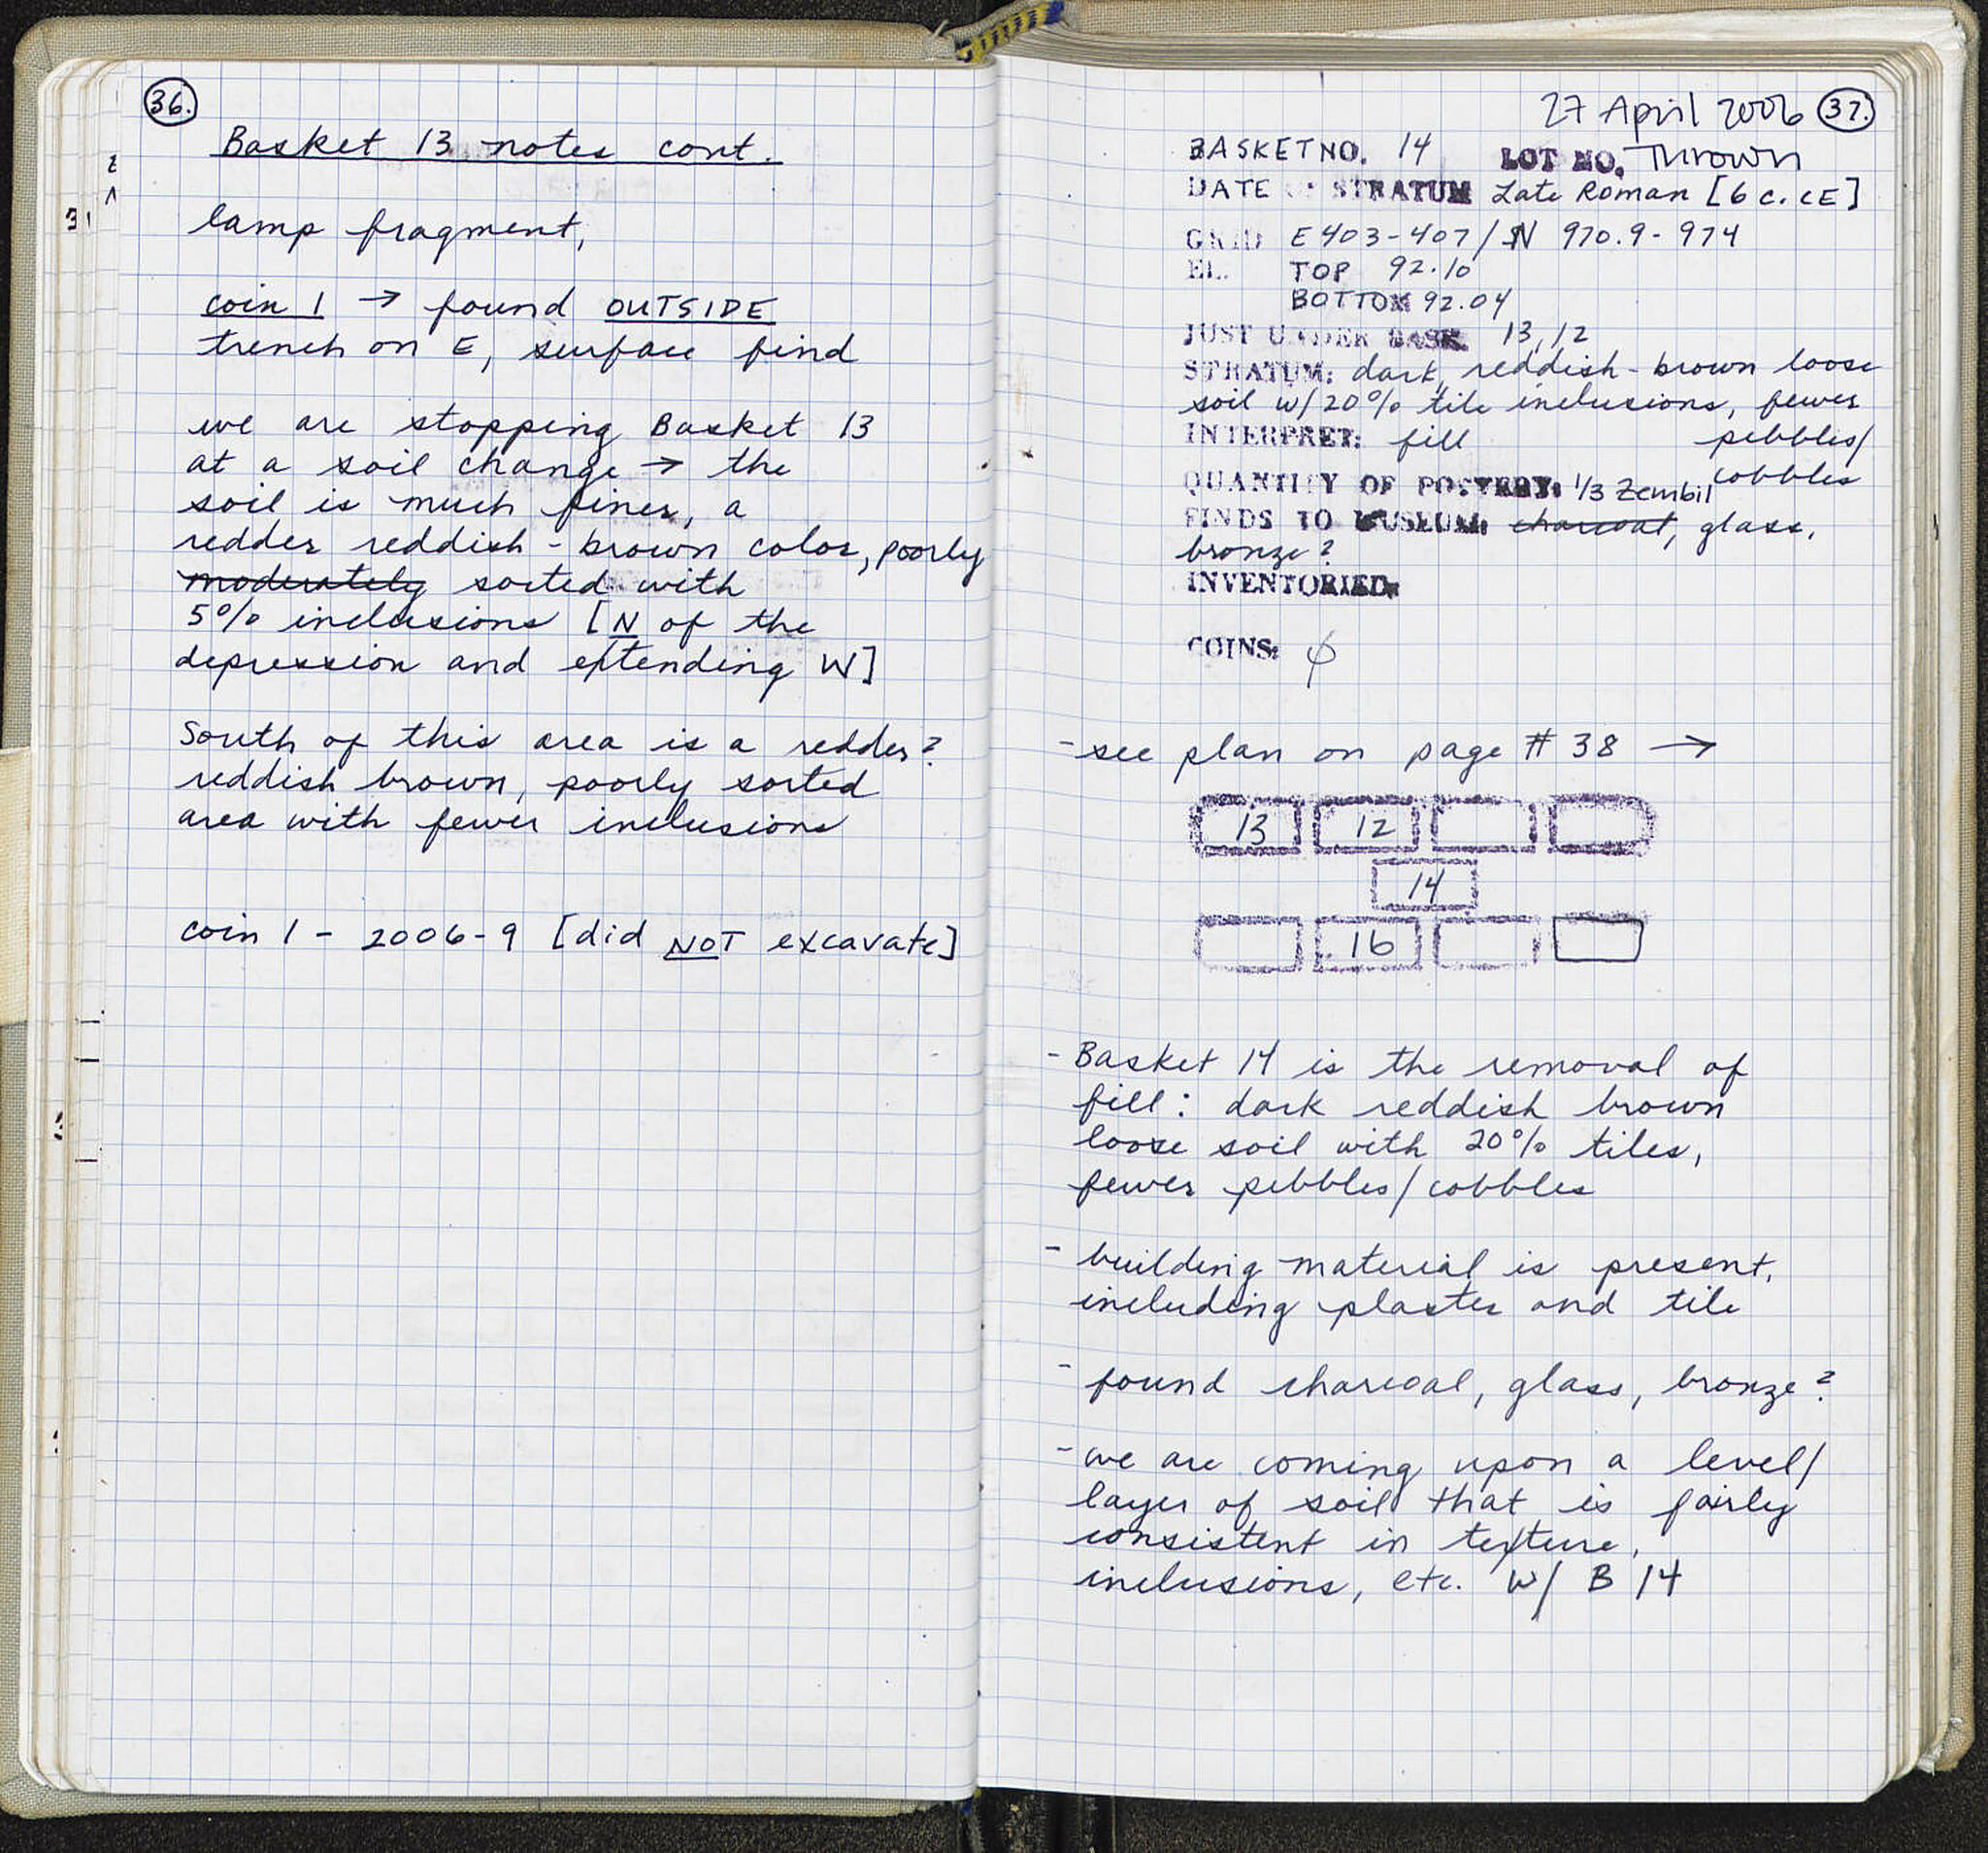 36.
Basket 13 notes cont.
lamp fragment,
coin 1 → found OUTSIDE
trench on E, surface find
we are stopping Basket 13
at a soil change → the
soil is much finer, a
redder reddish-brown color, poorly
moderately sorted with
5% inclusions [N of the
depression and extending W]
South of this area is a redder?
reddish brown, poorly sorted
area with fewer inclusions
coin 1 - 2006-9 [did NOT excavate]
27 April 2006 37.
BASKET NO. 14 LOT NO. Thrown
DATE OF STRATUM Late Roman [6 c. CE]
GRID E403-407/N 970.9-974
EL. TOP 92.10
BOTTOM 92.04
JUST UNDER BASK. 13, 12
STRATUM: dark, reddish-brown loose
soil w/ 20% tile inclusions, fewer
pebbles/
cobbles
INTERPRET: fill
QUANTITY OF POTTERY: 1/3 Zembil
FINDS TO MUSEUM: charcoal, glass,
bronze?
INVENTORIED
COINS: ϕ
- see plan on page # 38 →
13 12
14
16
- Basket 14 is the removal of
fill: dark reddish brown
loose soil with 20% tiles,
fewer pebbles/cobbles
- building material is present,
including plaster and tile
- found charcoal, glass, bronze?
- we are coming upon a level/
layer of soil that is fairly
consistent in texture,
inclusions, etc. w/ B 14